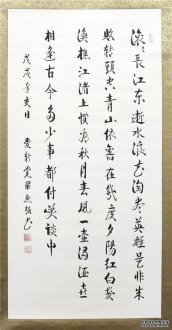 滚滚长江东逝水浪花淘尽英雄是非成
败转头空青山依旧在几度夕阳红白发
渔樵江渚上惯看秋月春风一壶浊酒喜
相逢古今多少事都付笑谈中
戊戌年亥日
爱新觉罗